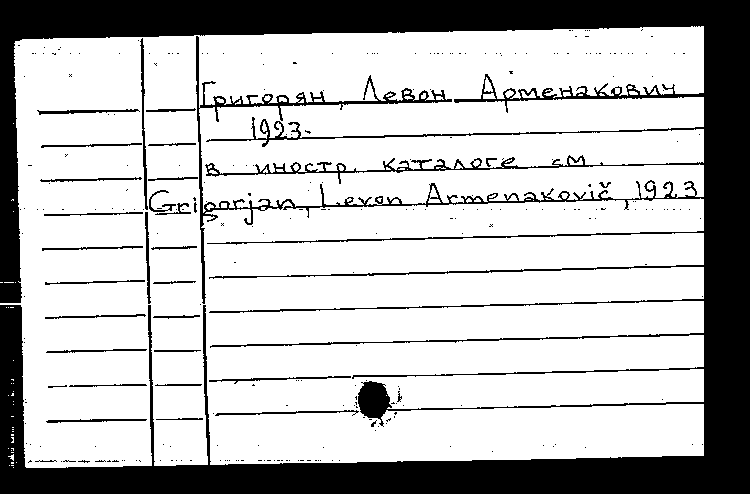 Григорян, Левон Арменакович
1923-
в иностр. каталоге см.
Grigorjan, Levon Armenakovič, 1923